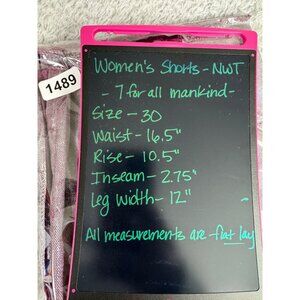 1489
Women's Shorts - NWT
- 7 for all mankind -
Size - 30
Waist - 16.5"
Rise - 10.5"
Inseam - 2.75"
Leg Width - 12"
All measurements are flat lay